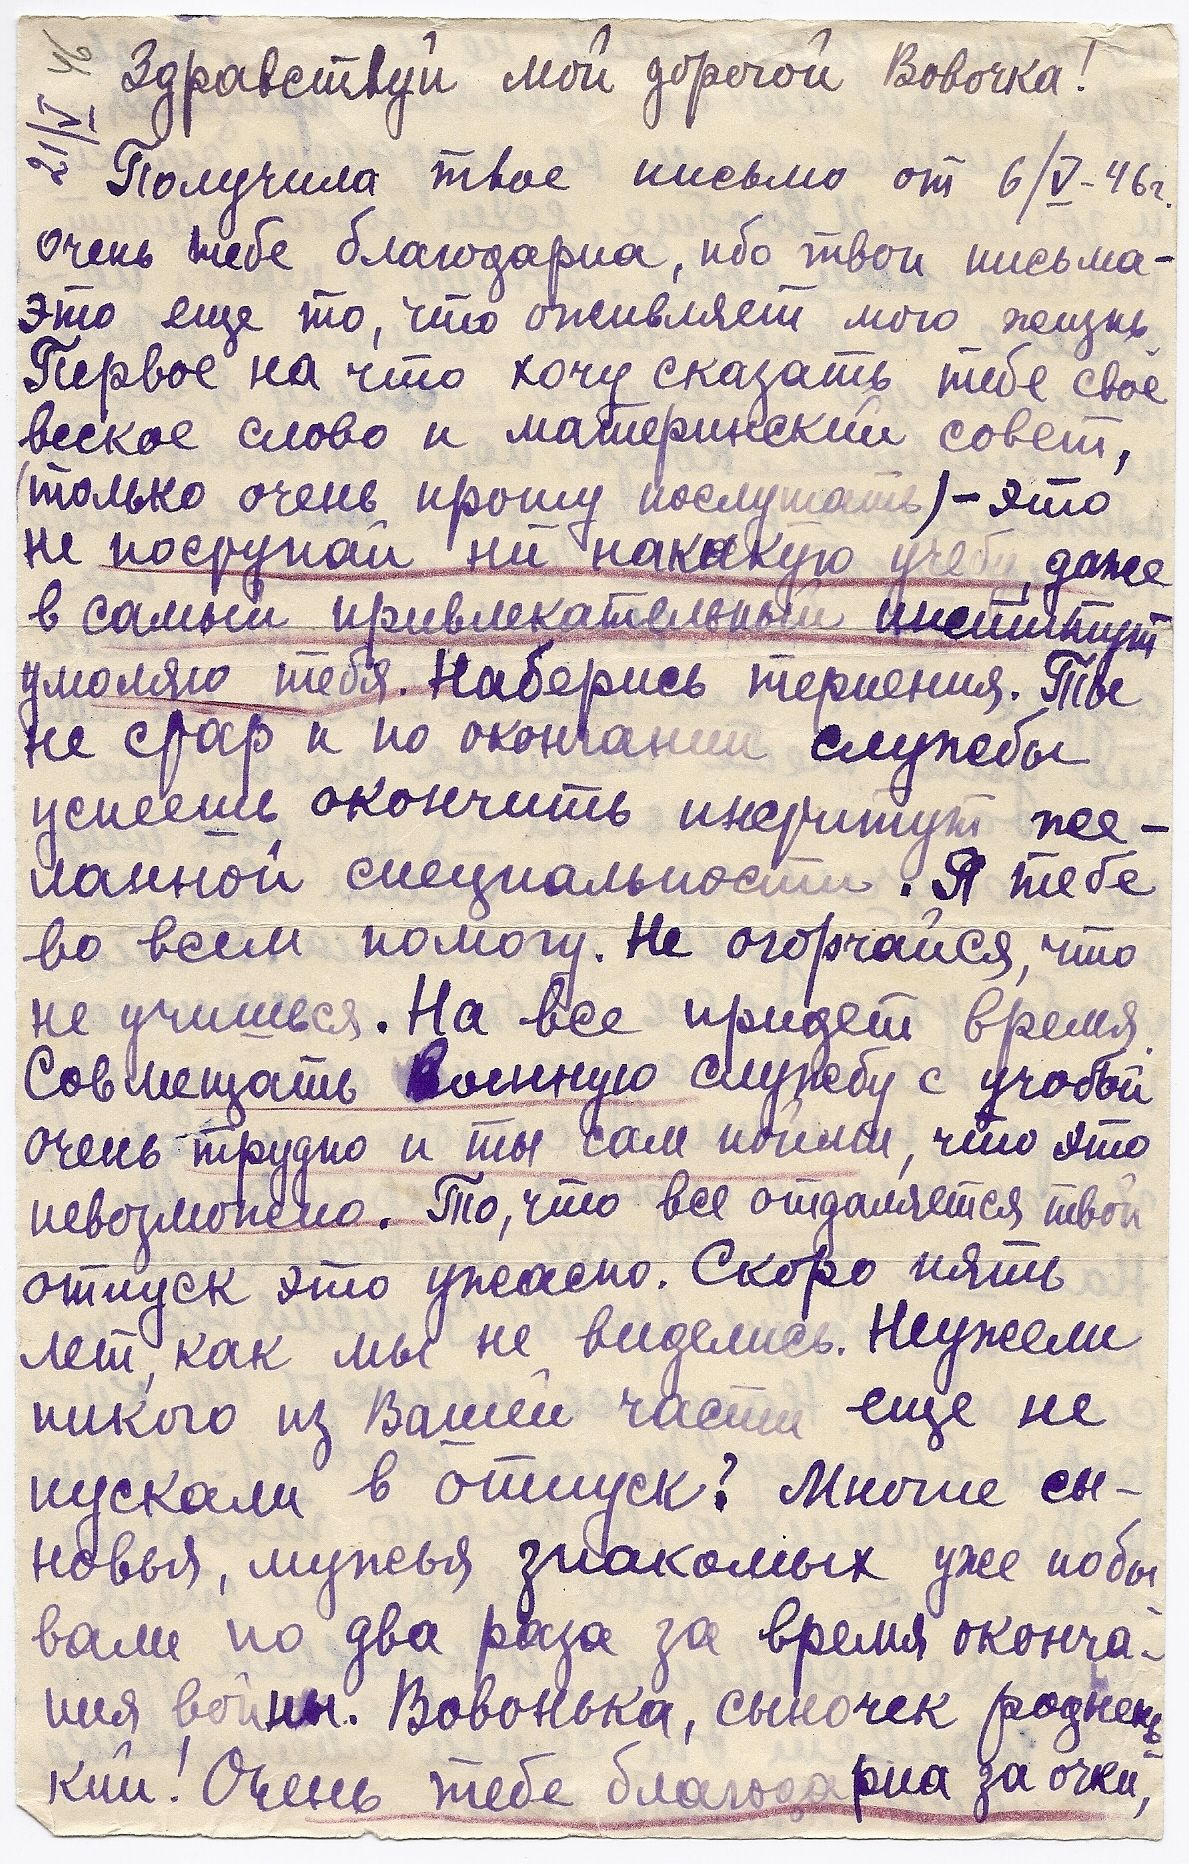 21/V 46
Здравствуй мой дорогой Вовочка!
Получила твое письмо от 6/V-46г.
очень тебе благодарна, ибо твои письма-
это еще то, что оживляет мою жизнь.
Первое на что хочу сказать тебе своё
веское слово и материнский совет,
(только очень прошу послушать) - это
не поступай ни на какую учебу, даже
в самый привлекательный институт
умоляю тебя. Наберись терпения. Ты
не стар и по окончании службы
успеешь окончить институт же-
ланной специальности. Я тебе
во всем помогу. Не огорчайся, что
не учишься. На все придет время.
Совмещать военную службу с учобой
очень трудно и ты сам пойми, что это
невозможно. То, что все отдаляется твой
отпуск это ужасно. Скоро пять
лет, как мы не виделись. Неужели
никого из Вашей части еще не
пускали в отпуск? Многие сы-
новья, мужья знакомых уже побы
вали по два раза за время оконча-
ния войны. Вовонька, сыночек роднень
кий! Очень тебе благодарна за очки,